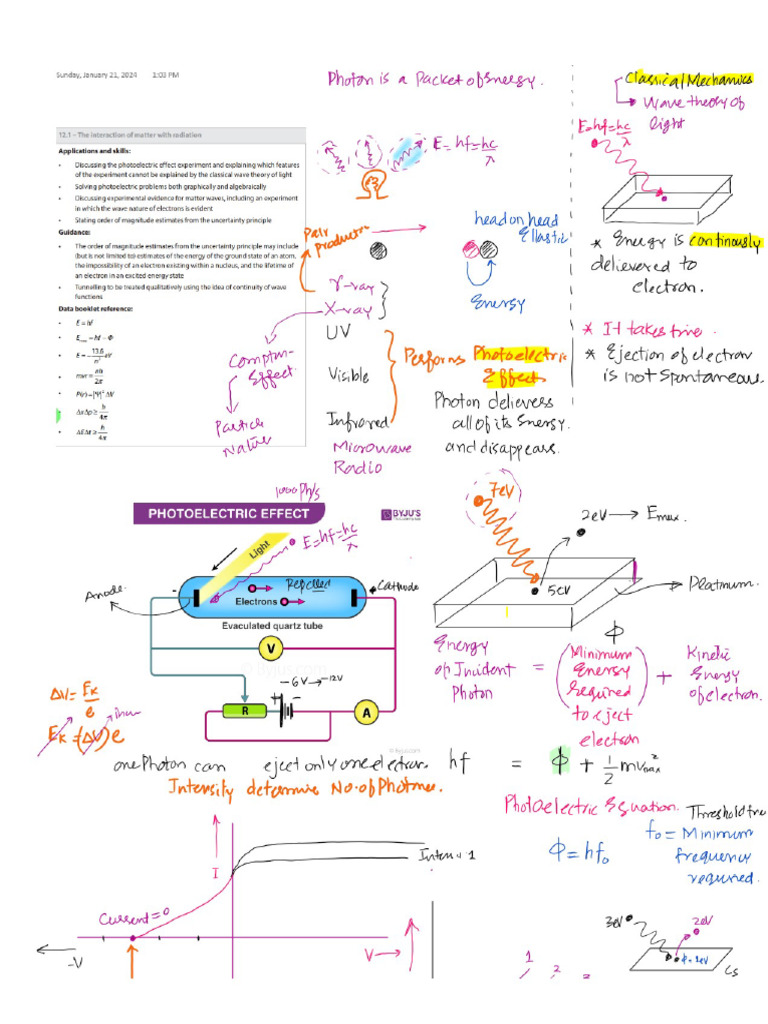 Sunday, January 21, 2024 2:03 PM
Photon is a Packet of Energy.
Classical Mechanics
Wave theory of
light
E=hf=hc/λ
12.1 – The interaction of matter with radiation
Applications and skills:
• Discussing the photoelectric effect experiment and explaining which features
of the experiment cannot be explained by the classical wave theory of light
• Solving photoelectric problems both graphically and algebraically
• Discussing experimental evidence for matter waves, including an experiment
in which the wave nature of electrons is evident
• Stating order of magnitude estimates from the uncertainty principle
Guidance:
• The order of magnitude estimates from the uncertainty principle may include
(but is not limited to) estimates of the energy of the ground state of an atom,
the impossibility of an electron existing within a nucleus, and the lifetime of
an electron in an excited energy state
• Tunnelling to be treated qualitatively using the idea of continuity of wave
functions
Data booklet reference:
• E = hf
• Emax = hf – Φ
• E = – 13.6/n² eV
• mvr = nh/2π
• P(r) = |Ψ|² ΔV
• ΔxΔp ≥ h/4π
• ΔEΔt ≥ h/4π
E= hf=hc/λ
Pair
production
head on head
Ellastic
Energy
γ-ray
X-ray
UV
Visible
Infrared
Microwave
Radio
Compton-
Effect.
Particle
Nature
Performs Photoelectric
Effect
Photon delievess
all of its Energy.
and disappears.
* Energy is continously
delievered to
electron.
* It takes time.
* Ejection of electron
is not Spontaneous.
1000 Ph/s
PHOTOELECTRIC EFFECT
BYJU'S
E=hf=hc/λ
Light
Anode.
-
Repelled
Electrons
+ Cathode
Evacuated quartz tube
V
-6V→-12V
R
+
-
A
© Byjus.com
ΔV= Ek/e
Ek=(ΔV)e
7eV
2eV → Emax.
5eV
Platinum.
Φ
Energy
of Incident
Photon
=
(Minimum
Energy
required)
to eject
electron
+
Kinetic
Energy
of electron.
one Photon can eject only one electron
hf = Φ + 1/2 mv²max
Intensity determine No. of Photons.
Photoelectric Equation.
Φ=hf₀
f₀ = Minimum
frequency
required.
I
Inten = 1
Current=0
-V
V→
3eV
2eV
Φ=1eV
Cs
1
2